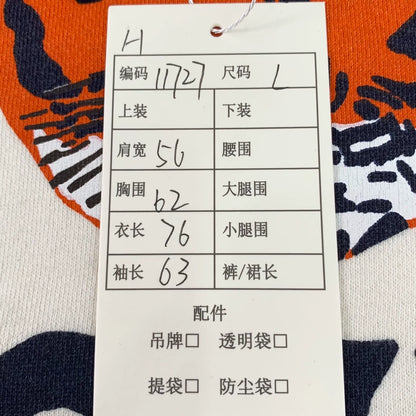 H
编码 11727 尺码 L
上装 下装
肩宽 56 腰围
胸围 62 大腿围
衣长 76 小腿围
袖长 63 裤/裙长
配件
吊牌□ 透明袋□
提袋□ 防尘袋□